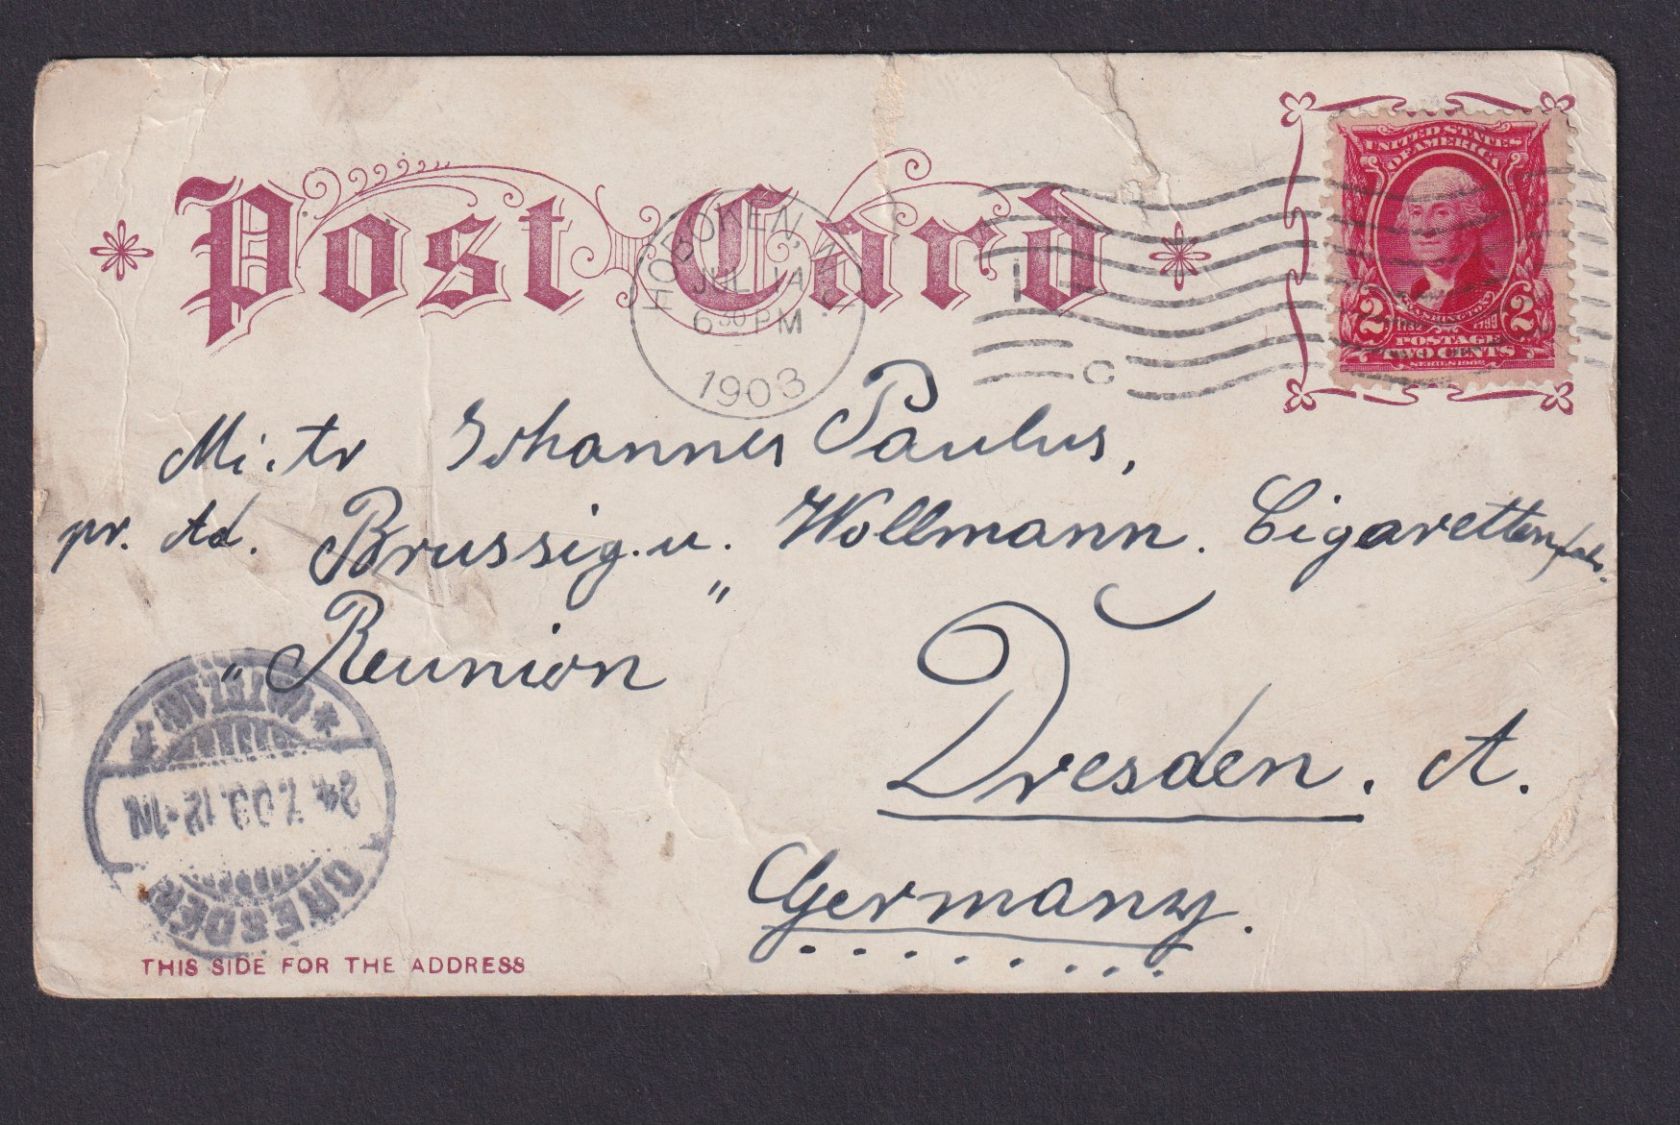 Post Card
HOBOKEN, N.J.
JUL 14
6 30 PM
1903
C
UNITED STATES
OF AMERICA
WASHINGTON
1732 1799
2 2
POSTAGE
TWO CENTS
SERIES 1902
Mistr Johannes Paulus,
pr. Ad. Brussig. u. Wollmann. Cigarettenfab.
"Reunion"
Dresden. A.
Germany.
DRESDEN
24.7.03.12-1N
ALTSTADT
THIS SIDE FOR THE ADDRESS